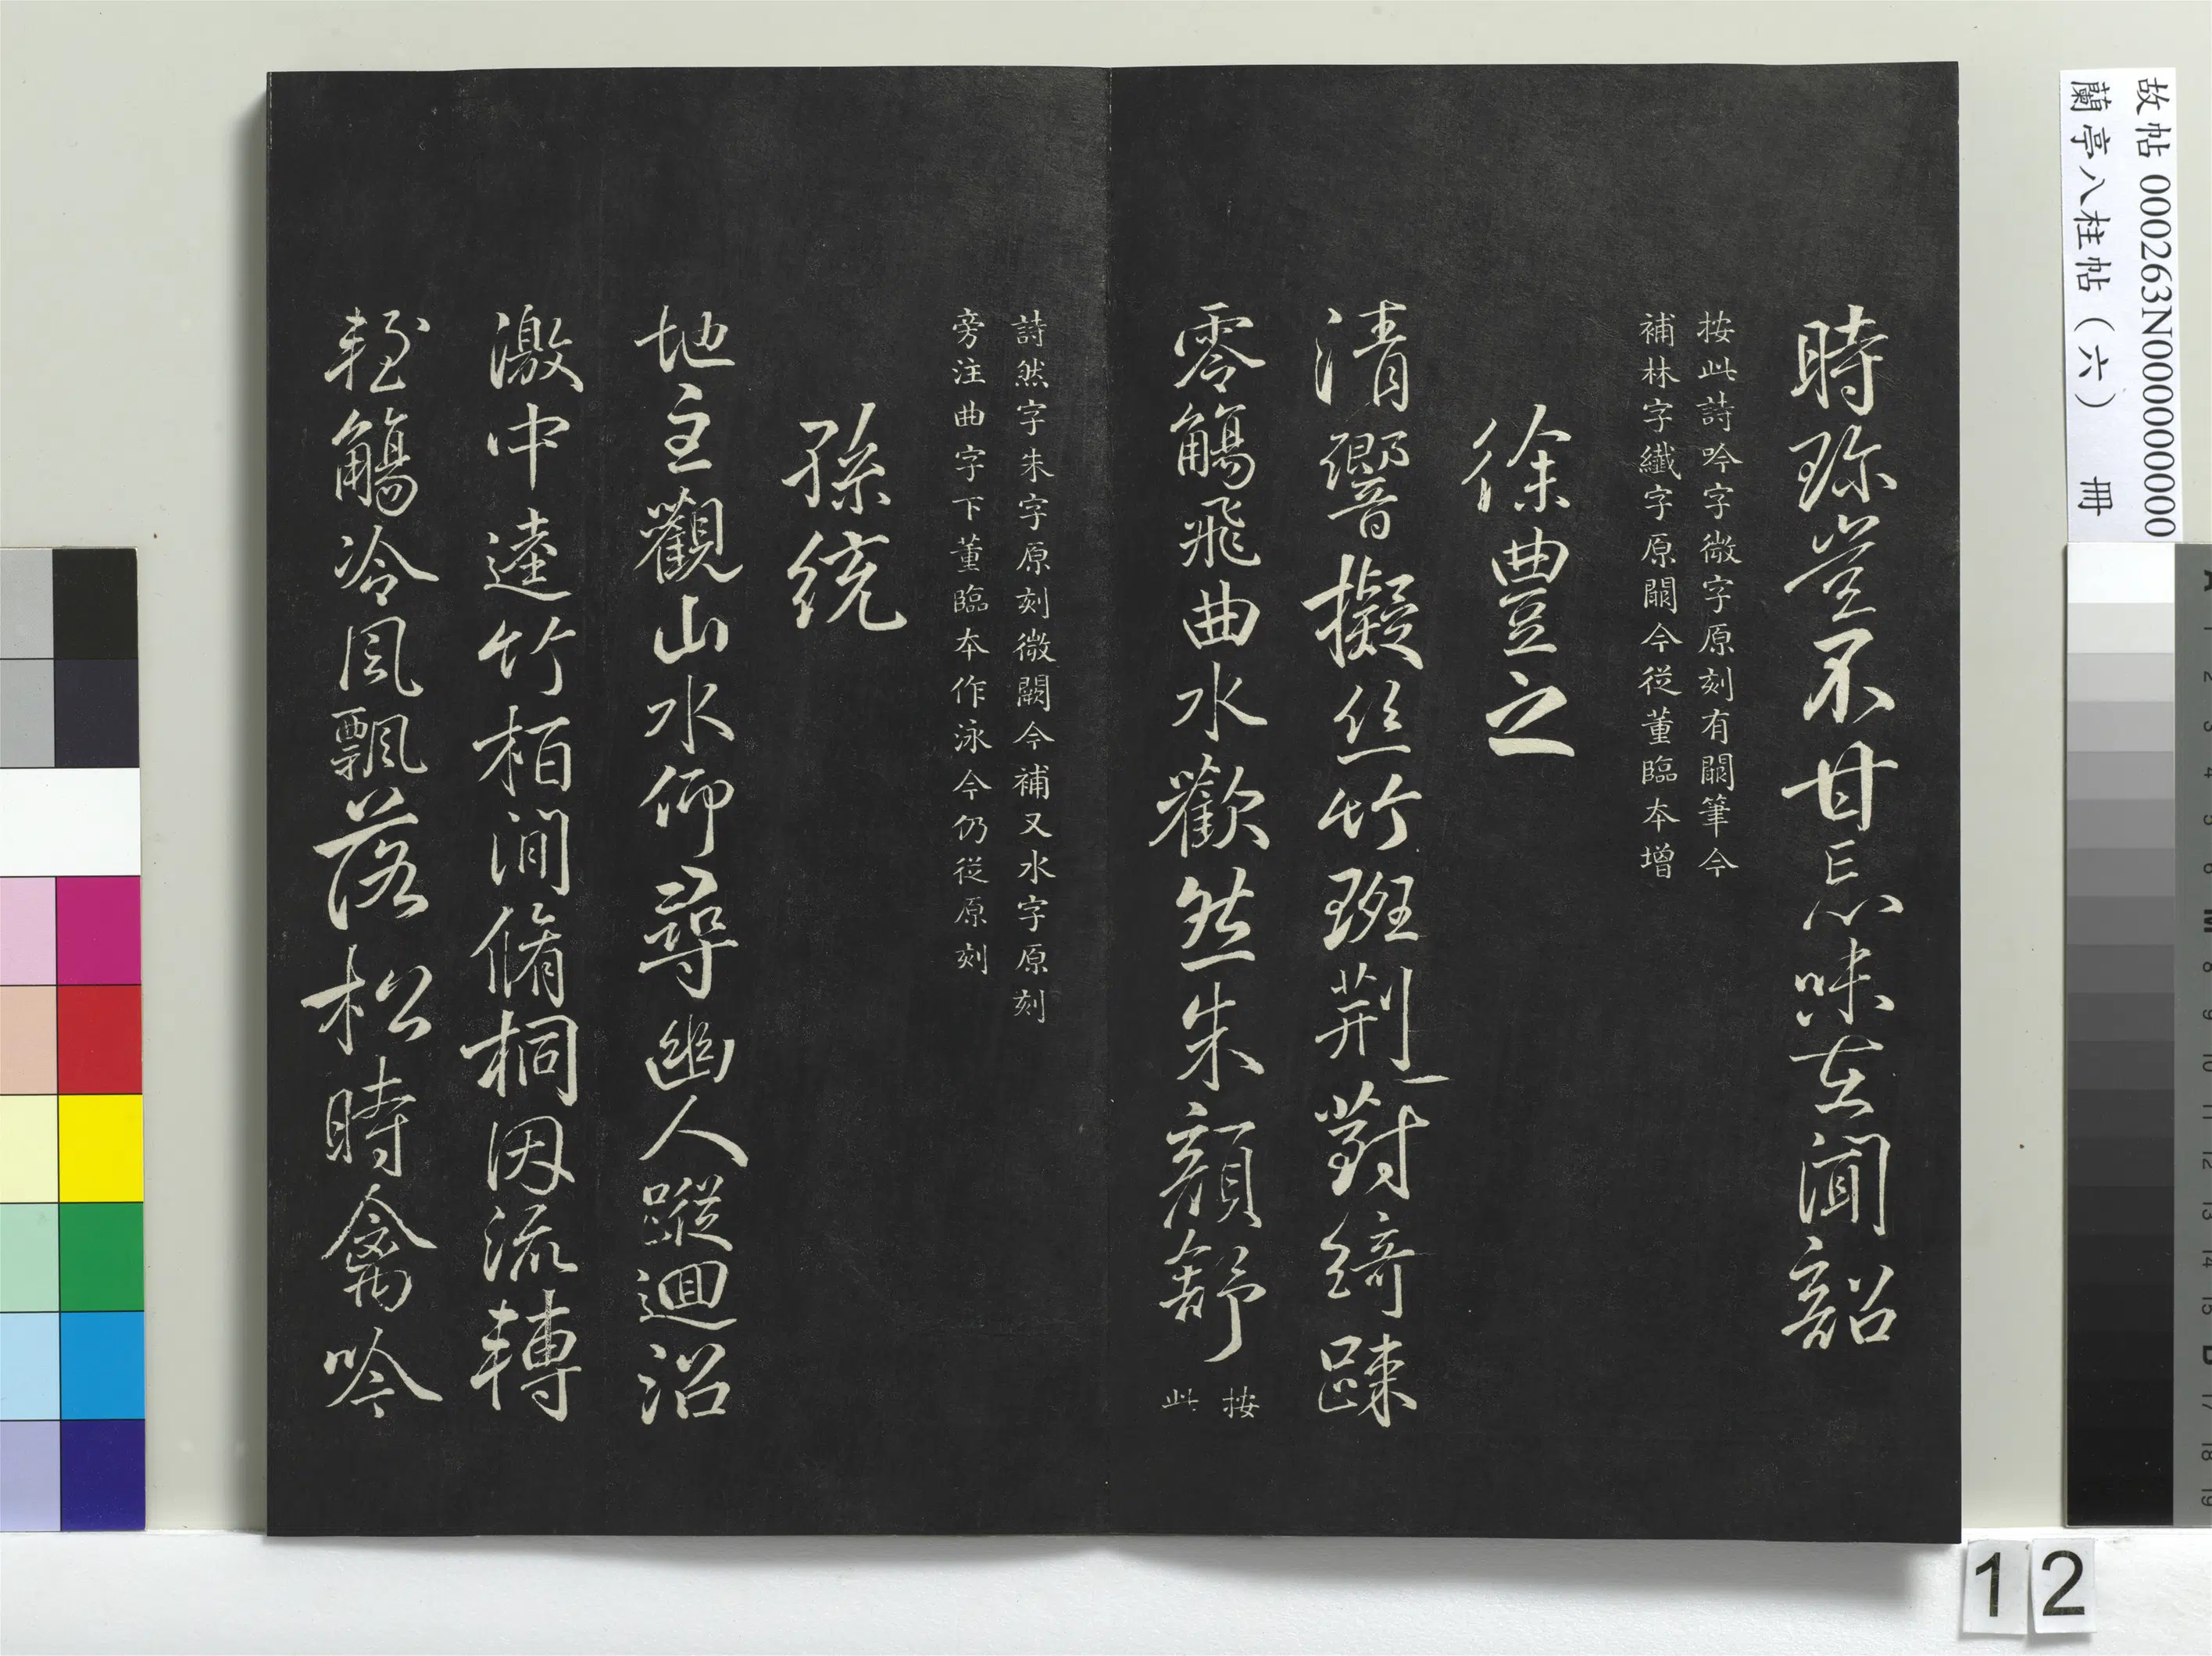 時珎豈不甘忘味在聞韶
按此詩吟字微字原刻有闕筆今
補林字纖字原闕今從董臨本增
徐豊之
清響擬丝竹班荆對綺踈
零觴飛曲水歡然朱顏舒
按
此
詩然字朱字原刻微闕今補又水字原刻
旁注曲字下董臨本作泳今仍從原刻
孫統
地主觀山水仰尋幽人蹤迴沼
激中逵竹栢澗脩桐因流轉
輕觴冷風飄落松時禽吟
故帖 000263N000000000
蘭亭八柱帖（六） 冊
12